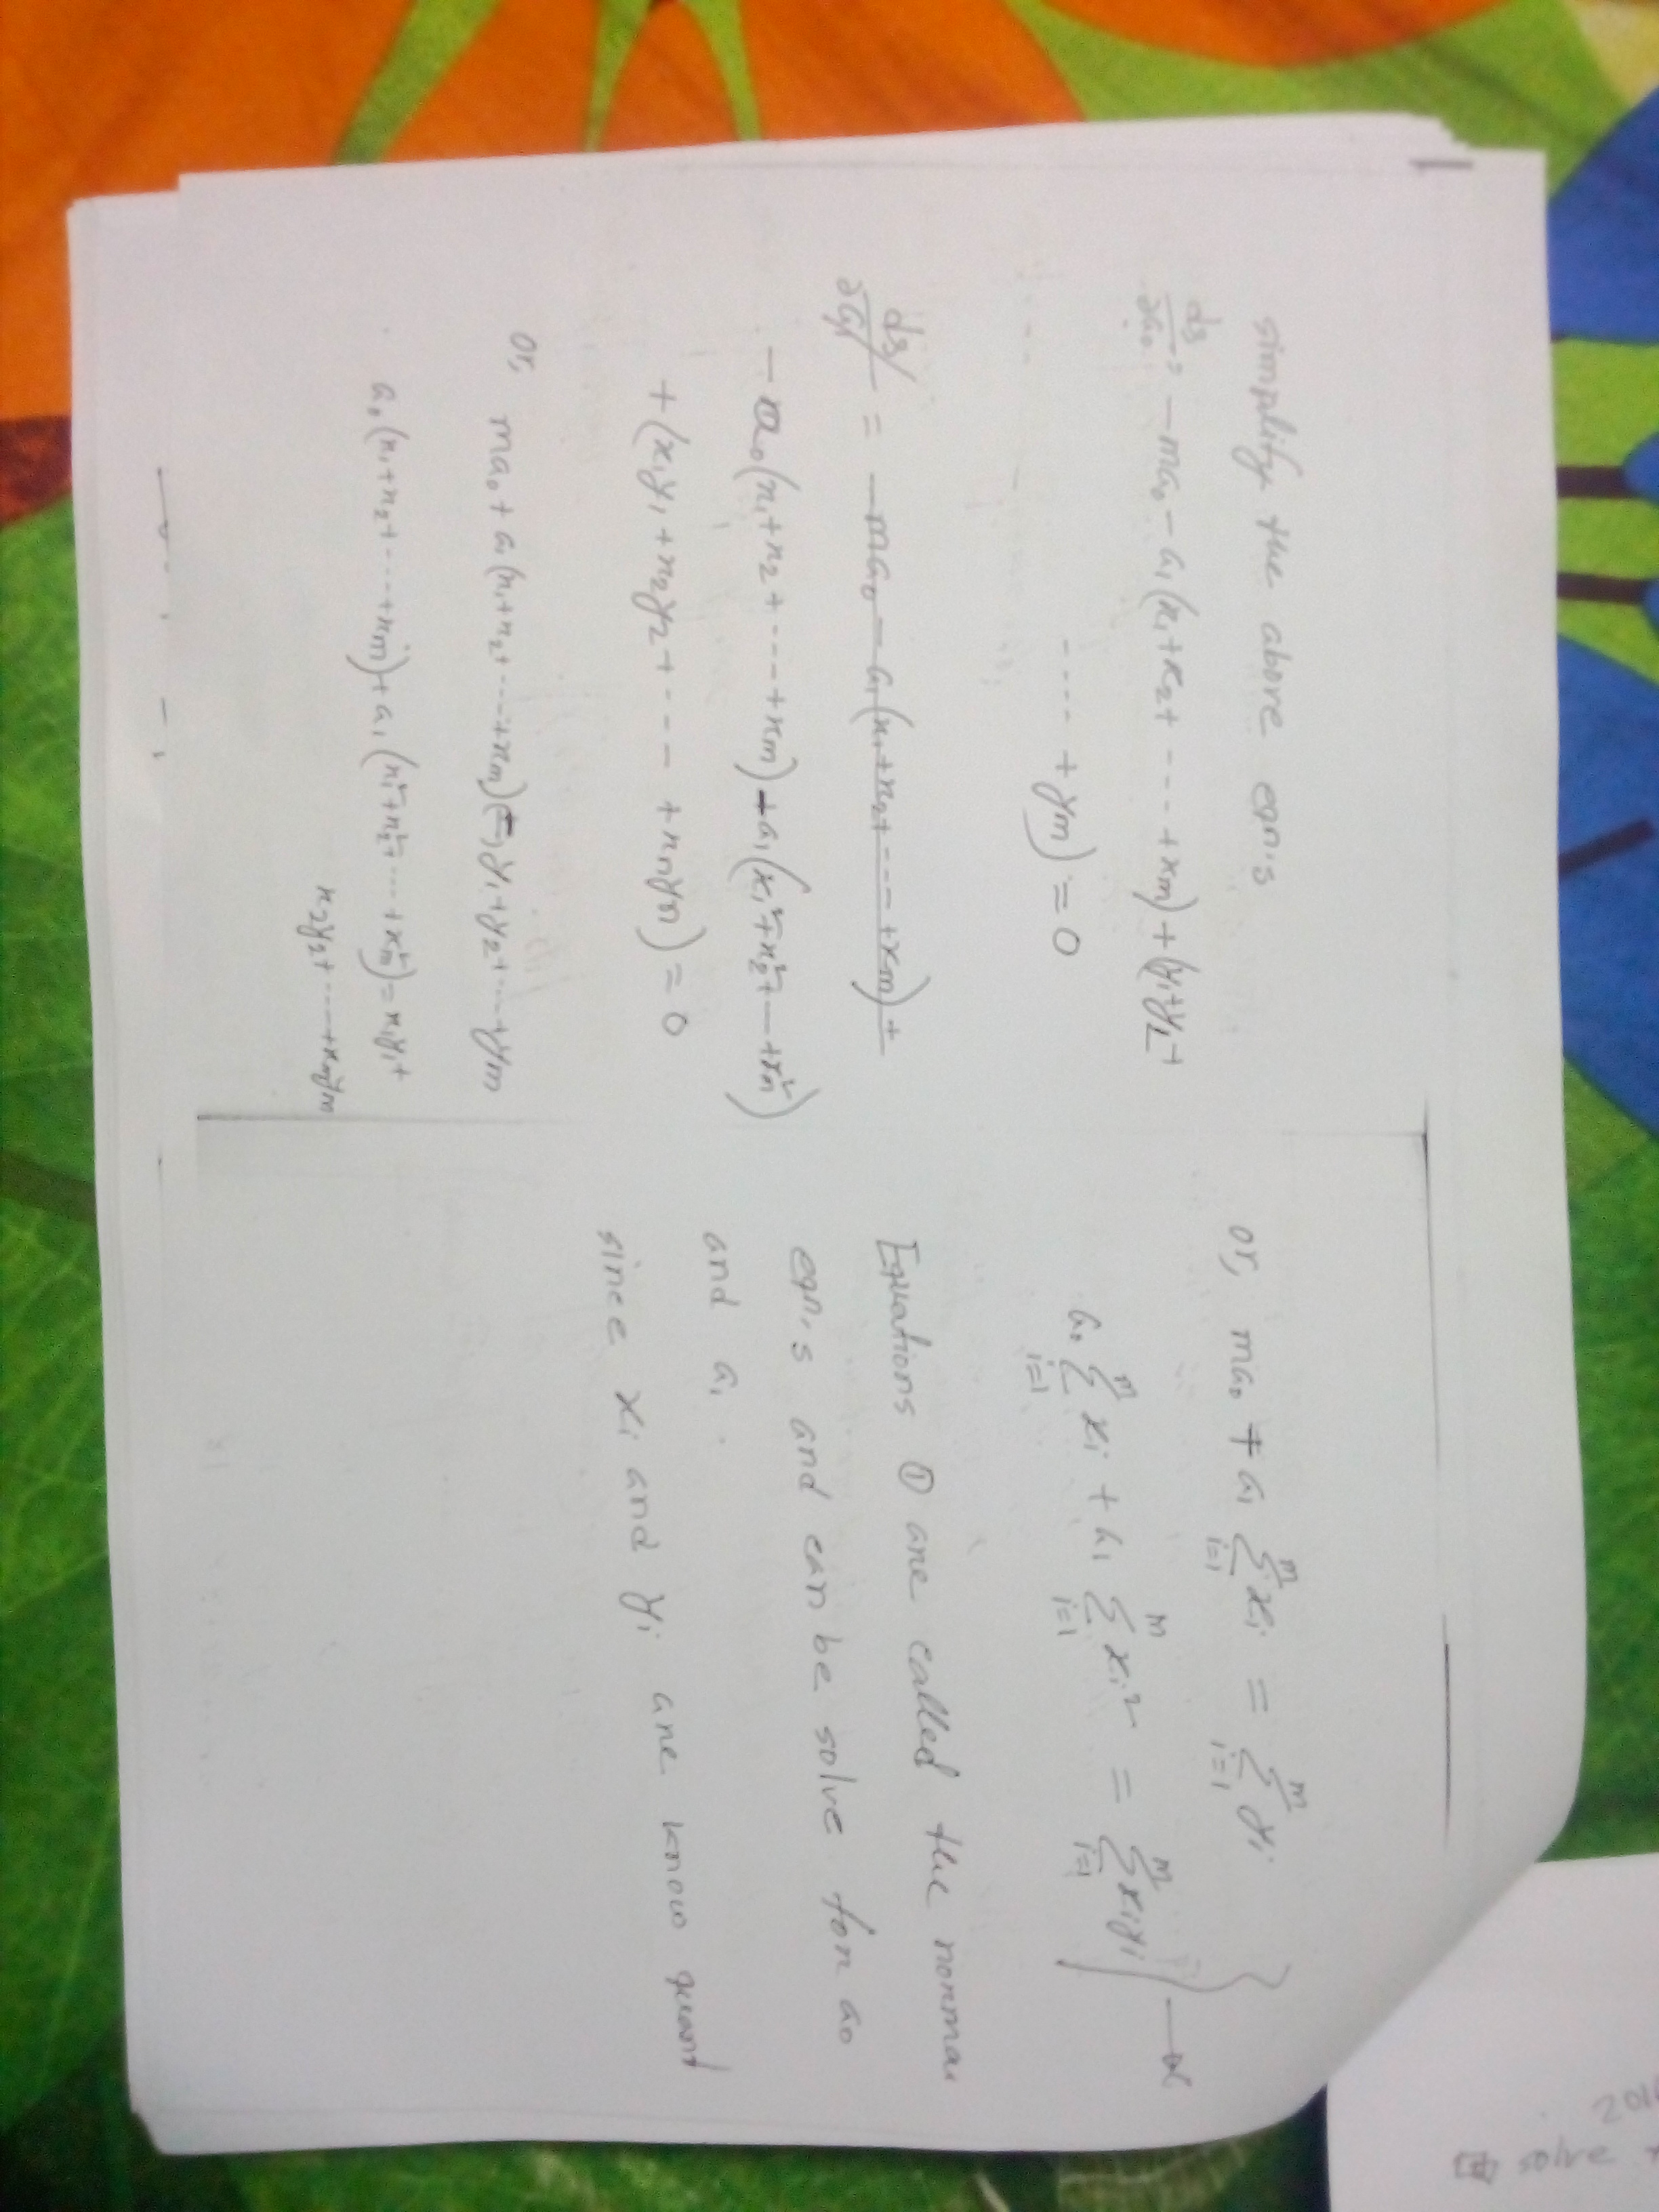 simplify the above eqn.s
ds/∂a₀ = -ma₀ - a₁(x₁+x₂+ ---- +xm) + (y₁+y₂+
---- +ym) = 0
ds/∂a₁ = -ma₀ - a₁(x₁+x₂+---- +xm) +
- a₀(x₁+x₂+----+xm) - a₁(x₁²+x₂²+---+xn²)
+(x₁y₁+x₂y₂+---- +xnyn) = 0
or, ma₀ + a₁(x₁+x₂+----+xm) = y₁+y₂+---+ym
a₀(x₁+x₂+----+xm)+a₁(x₁²+x₂²+---+xm²)=x₁y₁+
x₂y₂+----+xmym
or, ma₀ + a₁ m Σ i=1 xi = m Σ i=1 yi
a₀ m Σ i=1 xi + a₁ m Σ i=1 xi² = m Σ i=1 xiyi
Equations ① are called the norma
eqn.s and can be solve for a₀
and a₁.
since xi and yi are know quant
201
solve